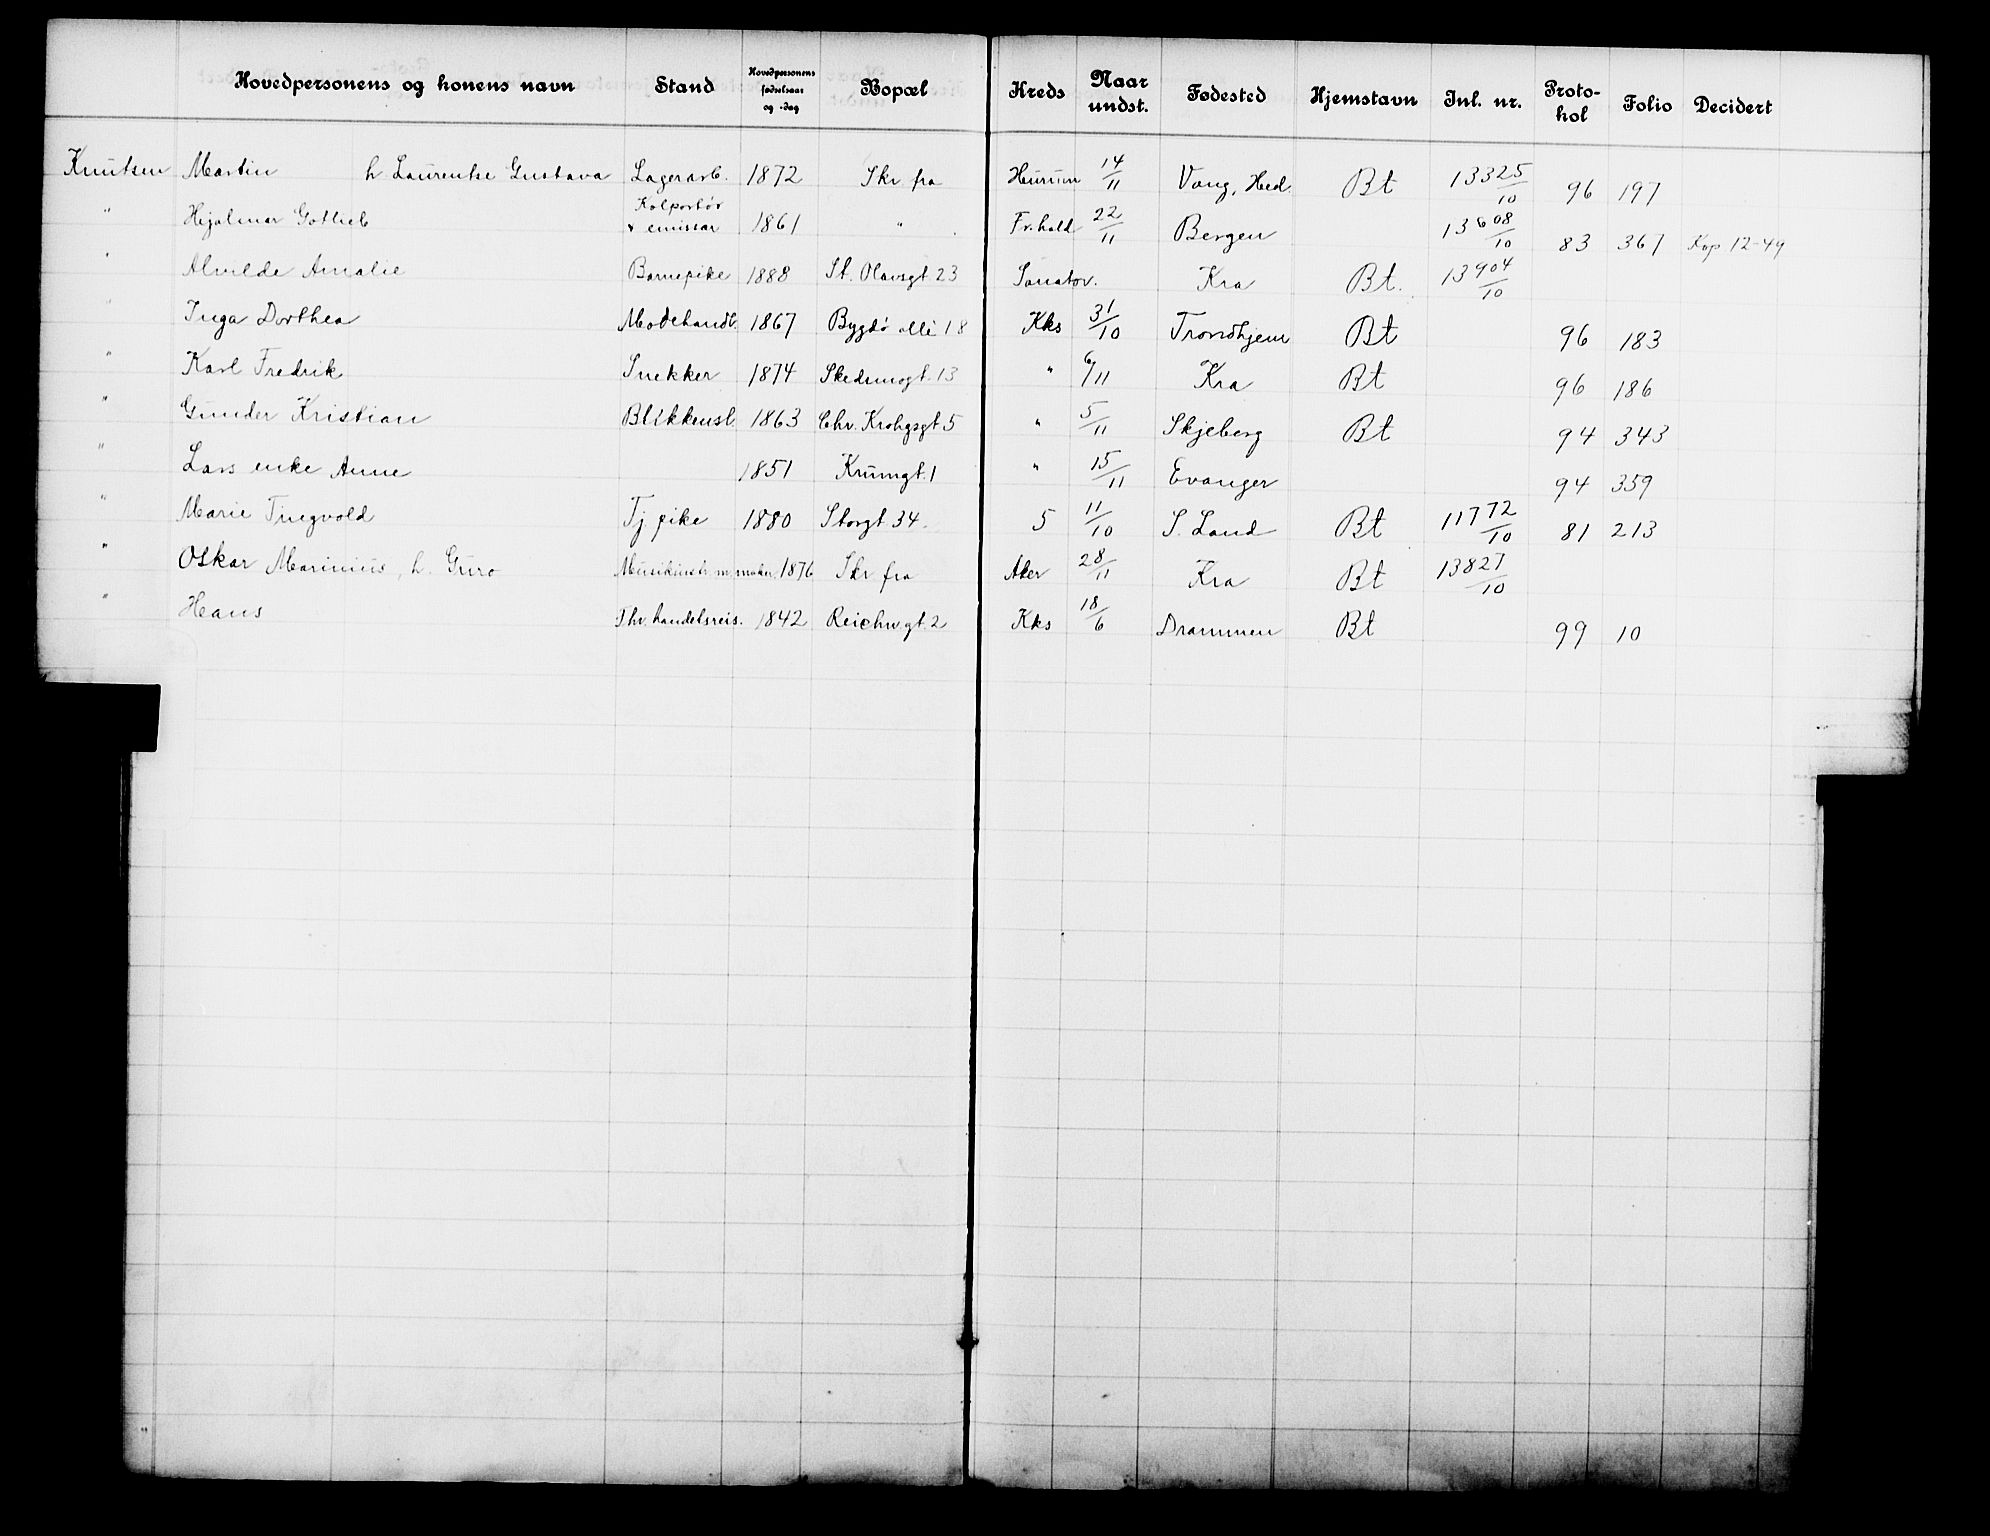 Hovedpersonens og konens navn Stand Hovedpersonens fødselsaar og -dag Bopæl Kreds Naar undst. Fødested Hjemstavn Inl. nr. Protokol Folio Decidert
Knutsen Martin h Laurentse Gustava Lagerarb. 1872 Skr fra Hurum 14/11 Vang, Hed. Bt 13325/10 96 197
" Hjalmar Gotlieb Kolportør & emissær 1861 " Fr.hald 22/11 Bergen 13608/10 83 367 Kop 12-49
" Alvilde Amalie Barnepike 1888 St. Olavsgt 23 Sanator. Kra Bt. 13904/10
" Inga Dorthea Modehandl. 1867 Bygdø allé 18 Kks 31/10 Trondhjem Bt 96 183
" Karl Fredrik Snekker 1874 Skedsmogt. 13 " 6/11 Kra Bt 96 186
" Gunder Kristian Blikkensl. 1863 Chr. Krohgsgt 5 " 5/11 Skjeberg Bt 94 343
" Lars enke Anne 1851 Krumgt. 1 " 15/11 Evanger 94 359
" Marie Tingvold Tj pike 1880 Storgt 34. 5 11/10 S. Land Bt 11772/10 81 213
" Oskar Marinius, h. Guro Musikinstr.m.maker. 1876 Skr fra Aker 28/11 Kra Bt 13827/10
" Hans Fhv. handelsreis. 1842 Reichw gt. 2 Kks 18/6 Drammen Bt 99 10